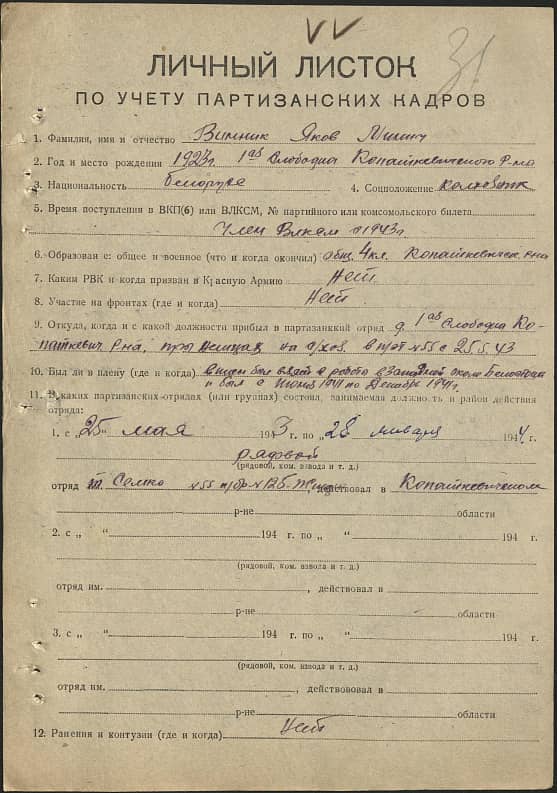 31
ЛИЧНЫЙ ЛИСТОК
ПО УЧЕТУ ПАРТИЗАНСКИХ КАДРОВ
1. Фамилия, имя и отчество Винник Яков
2. Год и место рождения 1927г. 1ая Слободка Копаткевичского р-на
3. Национальность белорус 4. Соцположение колхозник
5. Время поступления в ВКП(б) или ВЛКСМ, № партийного или комсомольского билета
Член Влксм с 1943г.
6. Образование: общее и военное (что и когда окончил) общ. 4 кл. Копаткевичск. р-на
7. Каким РВК и когда призван в Красную Армию Нет
8. Участие на фронтах (где и когда) Нет
9. Откуда, когда и с какой должности прибыл в партизанский отряд д. 1ая Слободка Ко-
паткевич. р-на, при немцах на с/хоз. в п/от №55 с 25.5.43
10. Был ли в плену (где и когда)
и был с Июня 1941 по Декабрь 1941г.
11. В каких партизанских отрядах (или группах) состоял, занимаемая должность и район действия
отряда:
1. с „25“ мая 1943 г. по „28“ января 1944 г.
рядовой
(рядовой, ком. взвода и т. д.)
отряд №55 действовал в Копаткевичском
р-не области
2. с „ “ 194 г. по „ “ 194 г.
(рядовой, ком. взвода и т. д.)
отряд им. , действовал в
р-не области
3. с „ “ 194 г. по „ “ 194 г.
(рядовой, ком. взвода и т. д.)
отряд им. , действововал в
р-не области
12. Ранения и контузии (где и когда) Нет